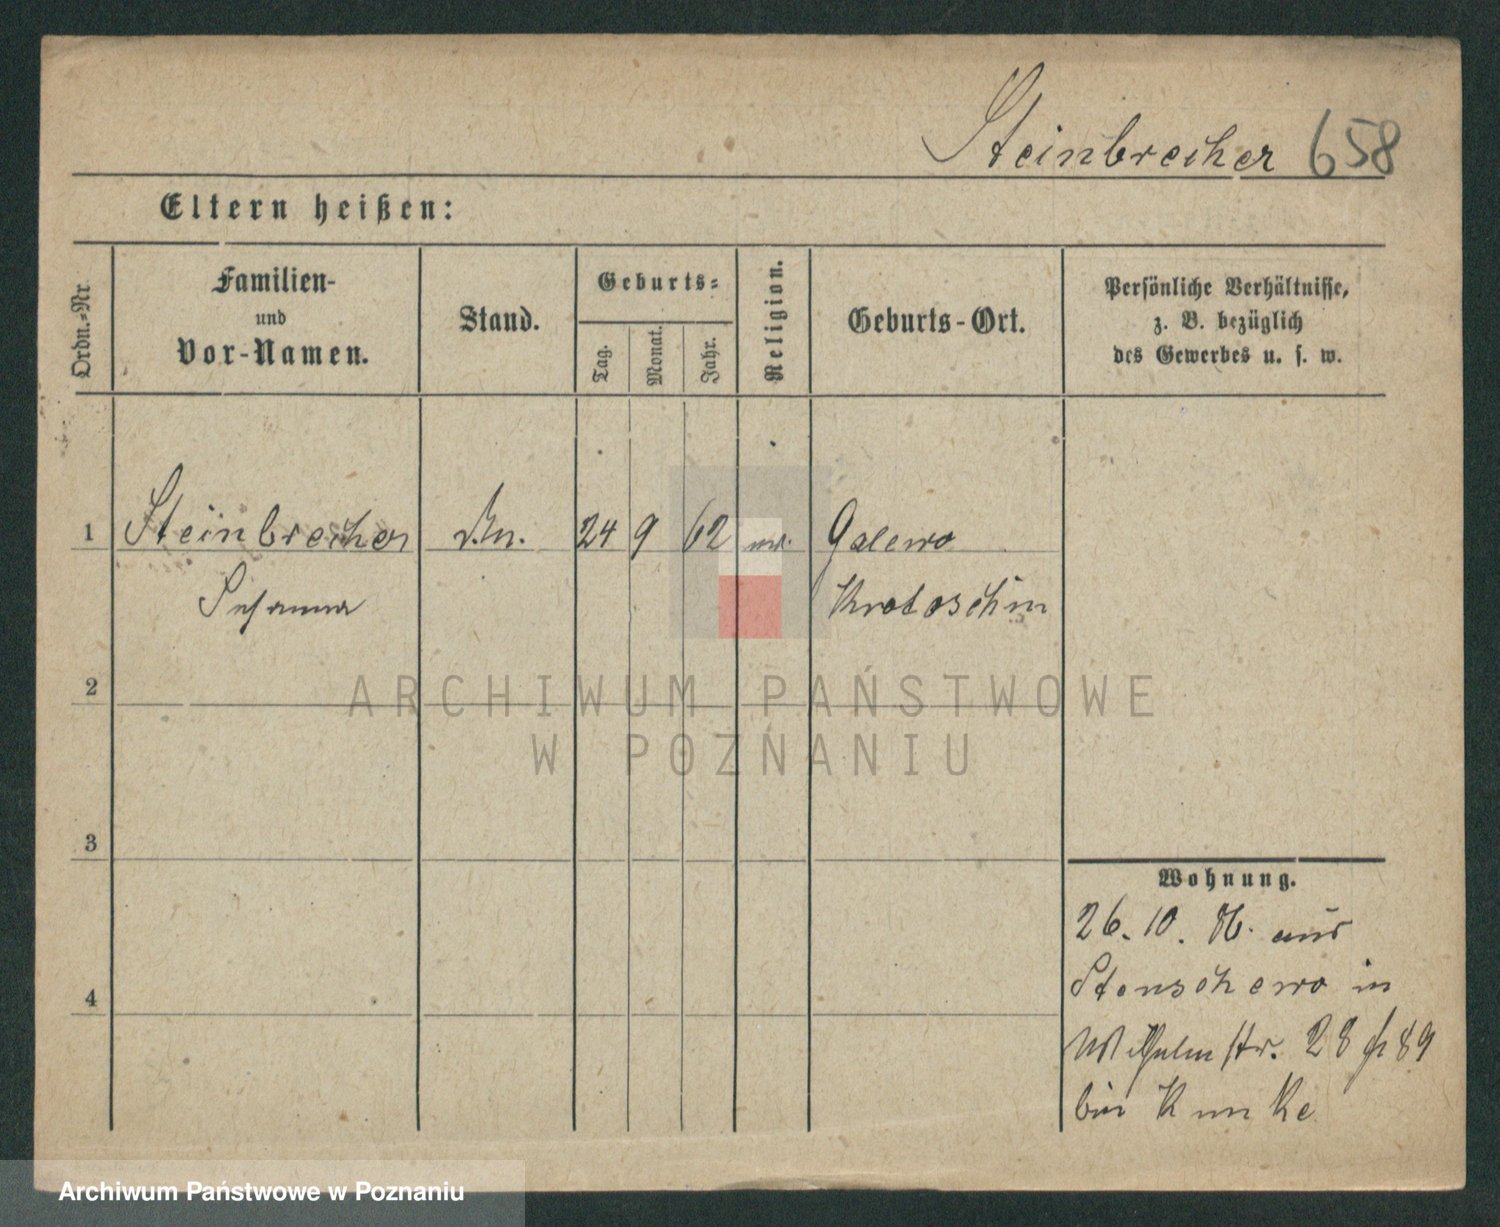 Steinbrecher 658
Eltern heißen:
Ordn.-Nr.
Familien-
und
Vor-Namen.
Stand.
Geburts-
Tag.
Monat.
Jahr.
Religion.
Geburts-Ort.
Persönliche Verhältnisse,
z. B. bezüglich
des Gewerbes u. s. w.
1 Steinbrecher 24 9 62 Galewo
Susanna Krotoschin
2
3
4
Wohnung.
26. 10. aus
Stenschewo in
Wilhelmstr. 28
bei Kunke
ARCHIWUM PAŃSTWOWE
W POZNANIU
Archiwum Państwowe w Poznaniu